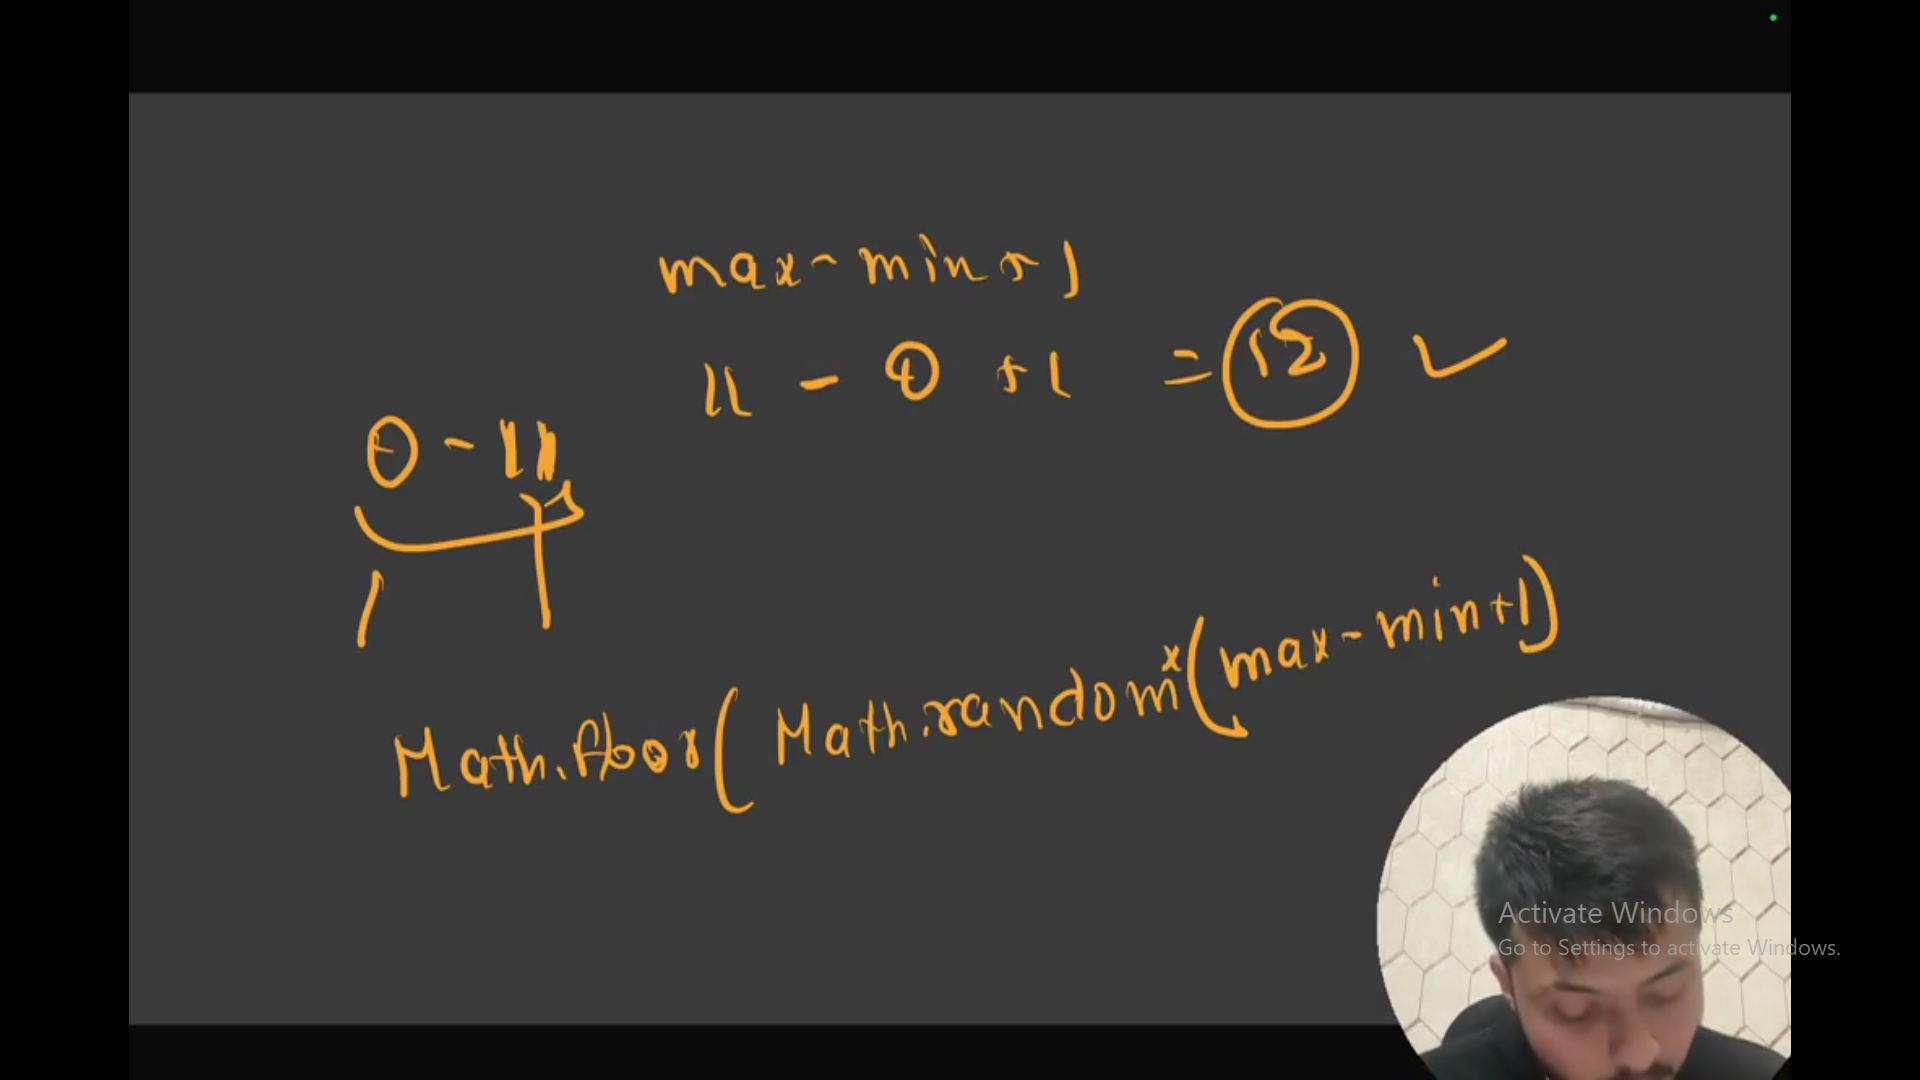 max - min + 1
11 - 0 + 1 = 12
0 - 11
Math.floor( Math.random * (max - min + 1)
Activate Windows
Go to Settings to activate Windows.